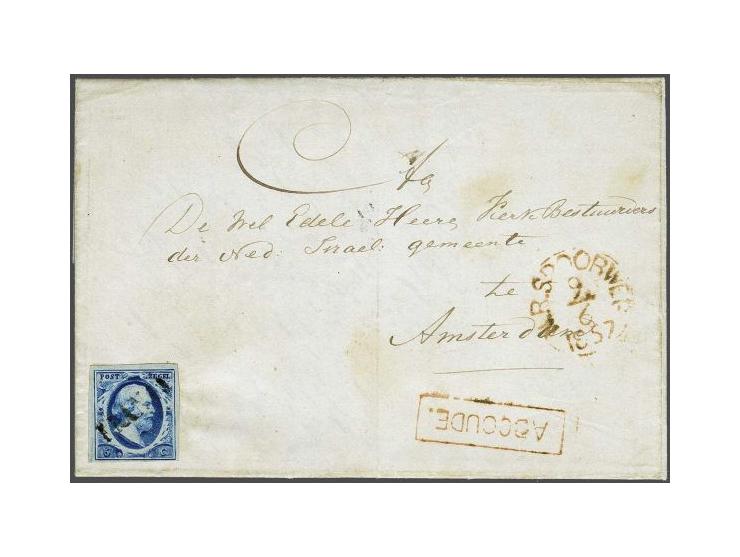 Aa
De Wel Edele Heere Kerk Bestuurders
der Ned. Israel: gemeente
te
Amsterdam
N.R.SPOORWEG
1857
ABCOUDE.
POST ZEGEL
5 C